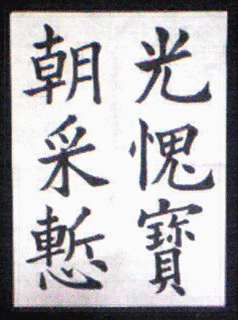 光愧寶
朝采慙